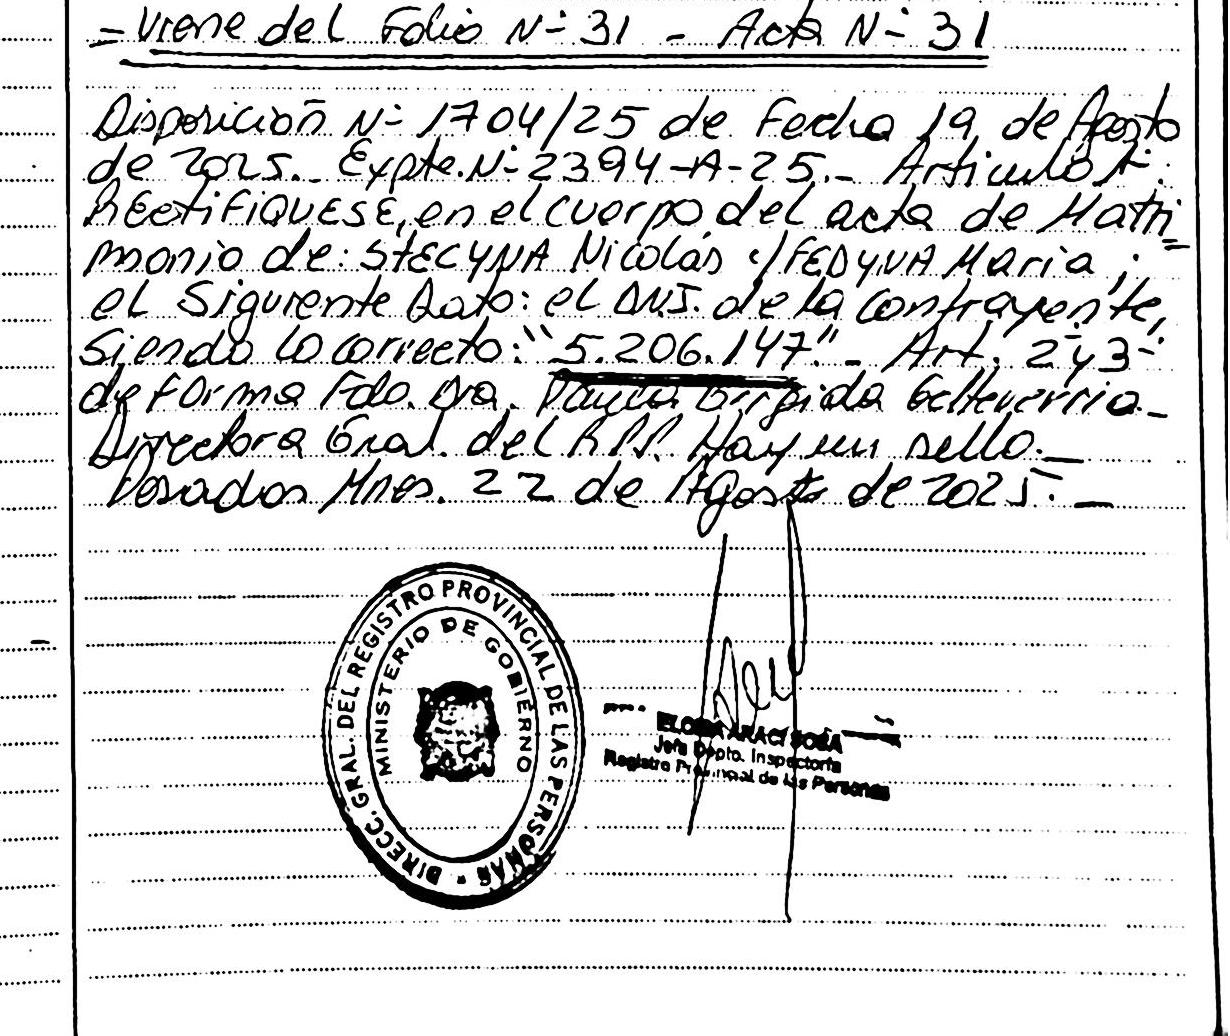 = Viene del Folio N- 31 - Acta N- 31
Disposición N- 1704/25 de Fecha 19 de Agosto
de 2025.- Expte. N- 2394-A-25.- Artículo 1-:
RECTIFIQUESE, en el cuerpo del acta de Matri
monio de: STECYNA Nicolás c/FEDYNA Maria ;
el Siguiente Dato: el D.N.I. de la contrayente,
Siendo lo correcto: "5.206.147"- Art. 2-y3-
de Forma Fdo. Dra. Brigida Echeverria.-
Directora Gral. del R.P.P. Hay un sello.-
Posadas Mnes. 22 de Agosto de 2025.-
DIRECC. GRAL. DEL REGISTRO PROVINCIAL DE LAS PERSONAS
MINISTERIO DE GOBIERNO
ARACI SOSA
Jefa Depto. Inspectoría
Registro Provincial de las Personas